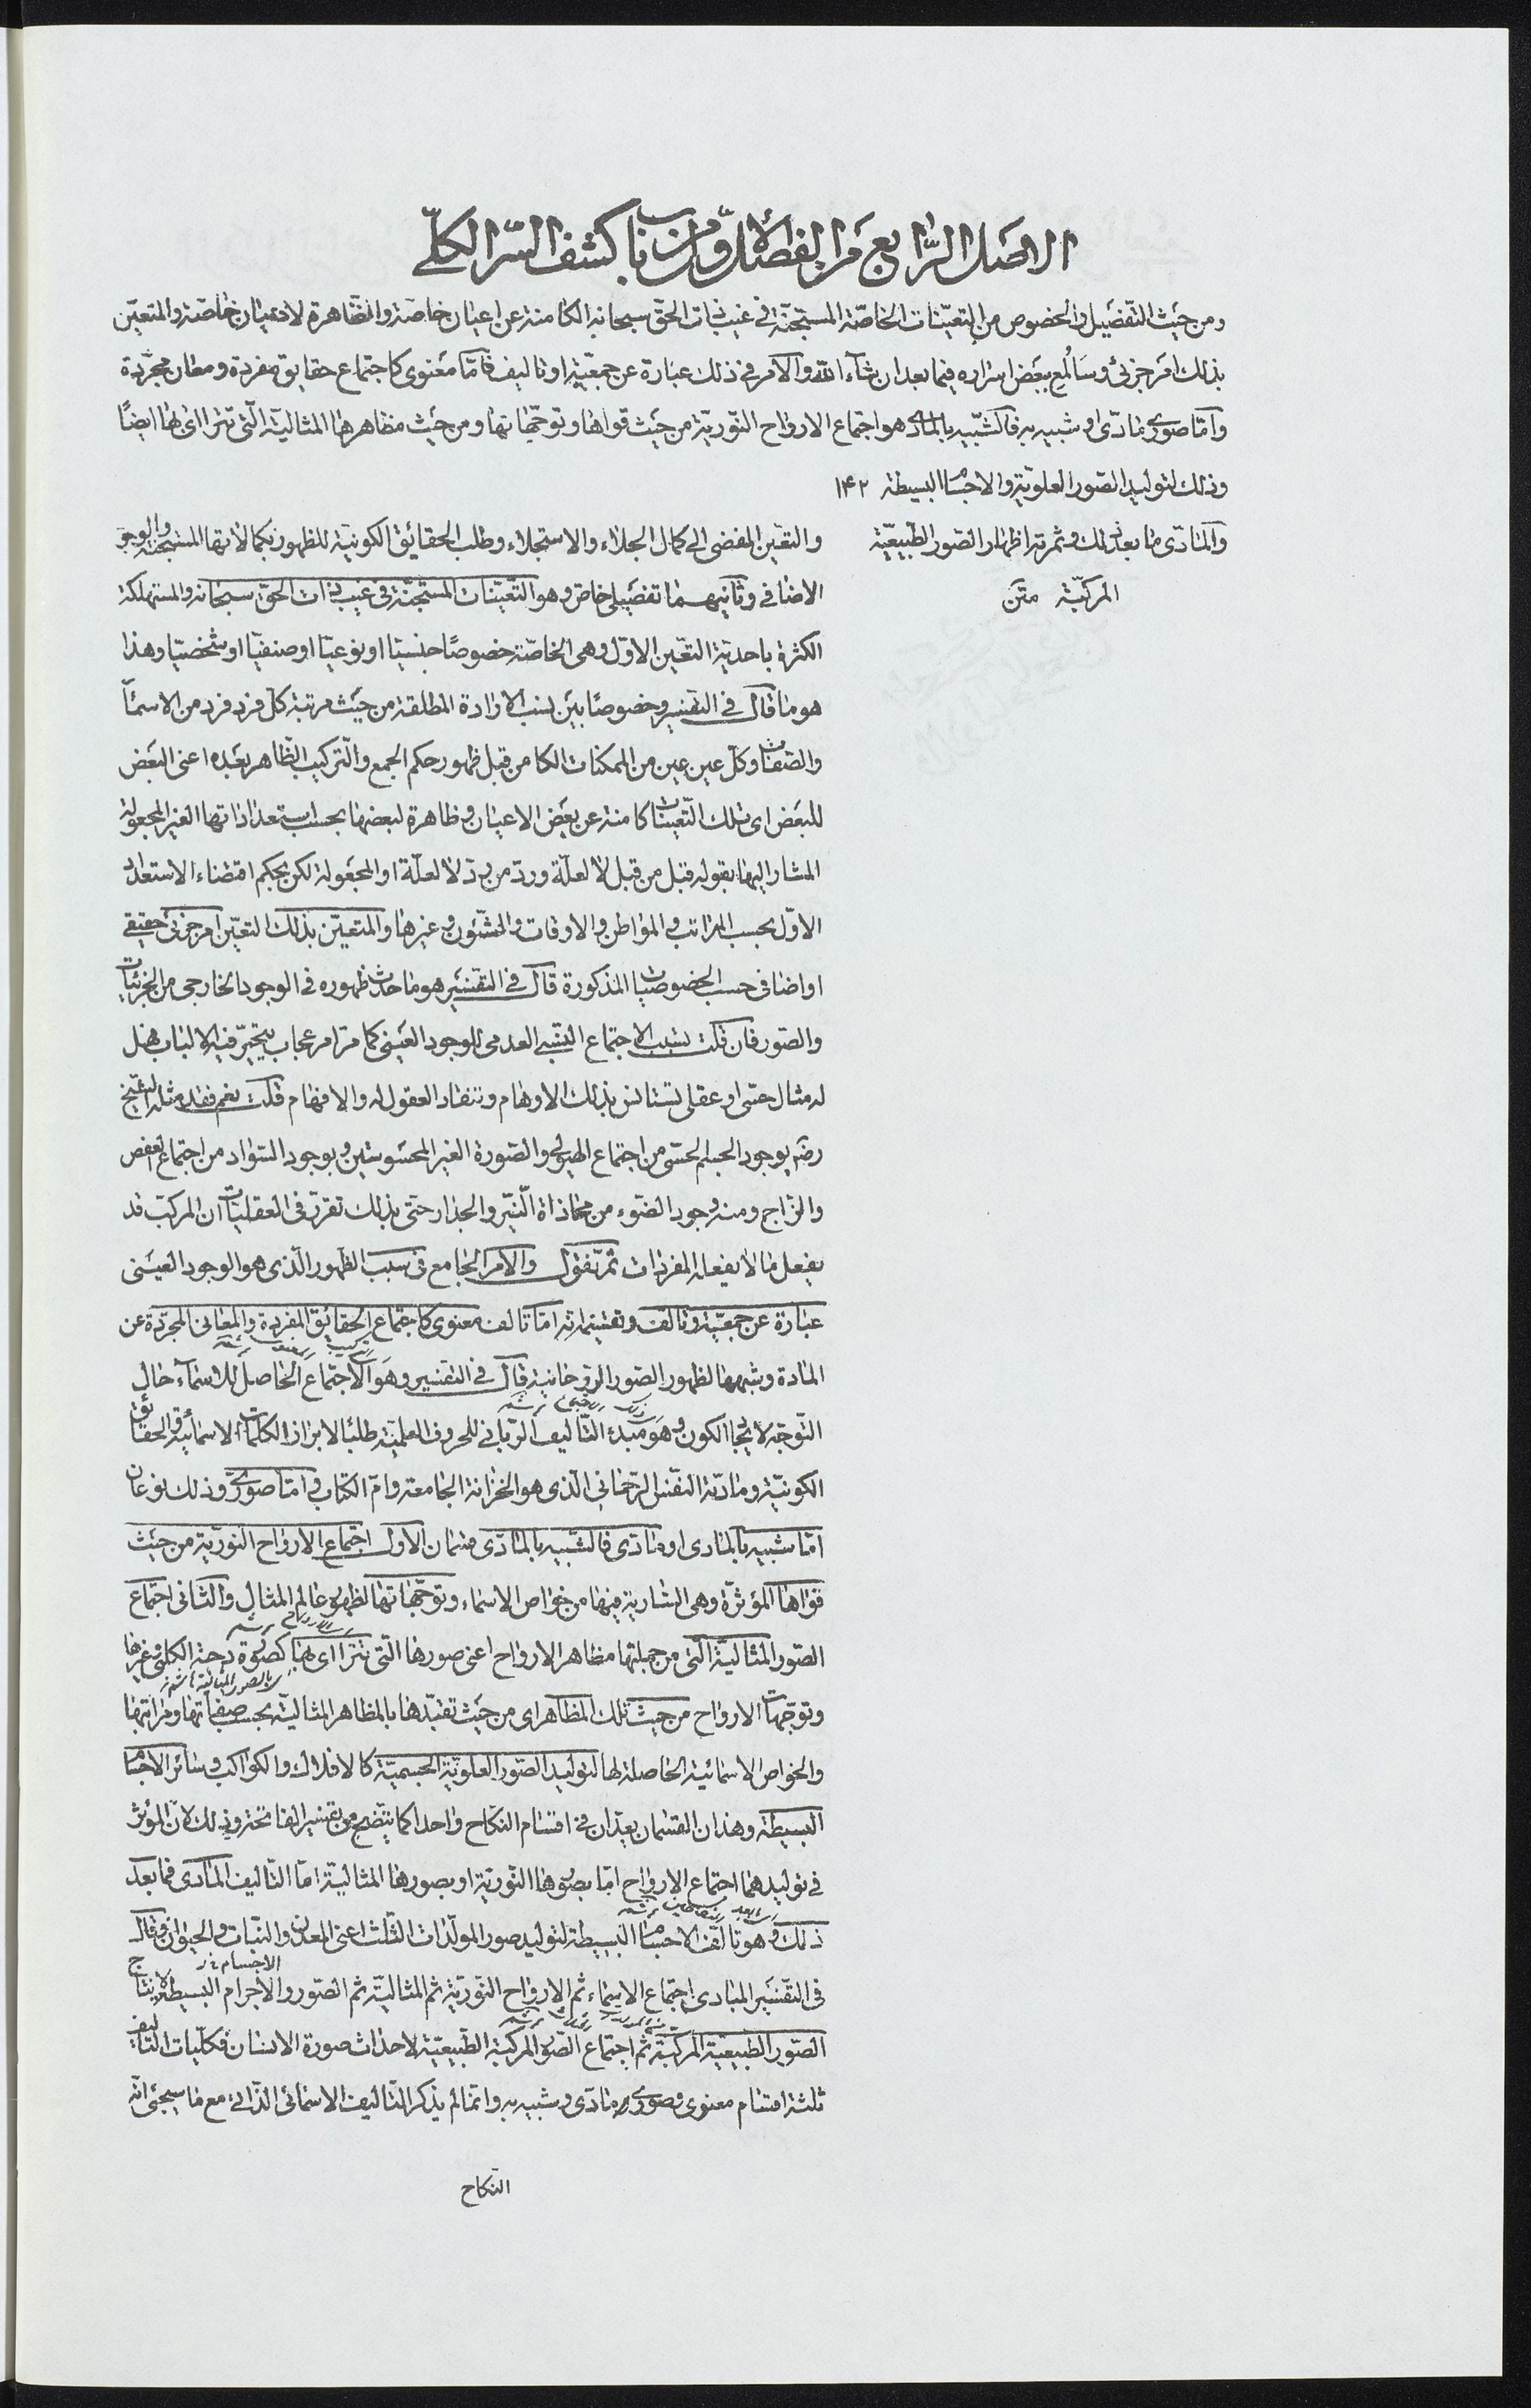 الاصل الرابع من الفصل الاول من باب كشف السر الكلى
ومن حيث التفصيل والخصوص من التعينات الخاصة المستجنة فى غيب ذات الحق سبحانه الكامنة عن اعيان خاصة والظاهرة لاعيان خاصة والمتعين
بذلك امر جزئى وسألمع ببعض اسراره فيما بعد ان شاء الله والامر فى ذلك عبارة عن جمعية او تاليف فامّا معنوى كاجتماع حقايق مفردة ومعان مجردة
وامّا صورى مادّى او شبيه به فالشبيه بالمادّى هو اجتماع الارواح النورية من حيث قواها وتوجّهاتها ومن حيث مظاهرها المثالية التى تتراأى بها ايضًا
وذلك لتوليد الصور العلوية والاجسام البسيطة ١٤٢
والمادّى ما بعد ذلك وثمرته اظهار الصور الطبيعية
المركبة متن
والتعين المفضى الى كمال الجلاء والاستجلاء وطلب الحقائق الكونية للظهور بكمالاتها المستجنة والوجود
الاضافى وثانيهما تفصيلى خاص وهو التعينات المستجنة فى غيب ذات الحق سبحانه والمستهلكة
الكثرة باحدية التعين الاول وهى الخاصة خصوصًا جنسيا او نوعيا او صنفيا او شخصيا وهذا
هو ما قال فى التفسير وخصوصًا بين نسب الارادة المطلقة من حيث مرتبة كل فرد فرد من الاسماء
والصفات وكل عين عين من الممكنات الكامن قبل ظهور حكم الجمع والتركيب الظاهر بعده اعنى البعض
للبعض اى تلك التعينات كامنة عن بعض الاعيان وظاهرة لبعضها بحسب استعداداتها الغير المجعولة
المشار اليها بقوله قبل من قبل لا لعلة ورد من رد لا لعلة او المجعولة لكن بحكم اقتضاء الاستعداد
الاول بحسب المراتب والمواطن والاوقات والشئون وغيرها والمتعين بذلك التعين امر جزئى حقيقى
او اضافى حسب الخصوصيات المذكورة قال فى التفسير هو ما حدث ظهوره فى الوجود الخارجى من الجزئيات
والصور فان قلت نسب الاجتماع النسبى العدمى للوجود العينى كما مر امر عجاب يتحير فيه الالباب فهل
له مثال حسى او عقلى تستانس بذلك الاوهام وتنقاد العقول له والافهام قلت نعم فقد مثله الشيخ
رضه بوجود الجسم الحسى من اجتماع الهيولى والصورة الغير المحسوستين وبوجود السواد من اجتماع العفص
والزاج ومنه وجود الضوء من محاذاة النير والجدار حتى بذلك تقرر فى العقليات ان المركب قد
يفعل ما لا يفعله المفردات ثم نقول والامر الجامع فى سبب الظهور الذى هو الوجود العينى
عبارة عن جمعية وتالف وتقسيمه انه امّا تالف معنوى كاجتماع الحقائق المفردة والمعانى المجردة عن
المادة وشبهها لظهور الصور الروحانية قال فى التفسير وهو الاجتماع الحاصل للاسماء حال
التوجه لايجاد الكون وهو مبدء التاليف الربانى للحروف العلمية طلبًا لابراز الكلمات الاسمائية والحقائق
الكونية ومادته النفس الرحمانى الذى هو الخزانة الجامعة وام الكتاب وامّا صورى وذلك نوعان
امّا شبيه بالمادى او مادى فالشبيه بالمادى قسمان الاول اجتماع الارواح النورية من حيث
قواها المؤثرة وهى السارية فيها من خواص الاسماء وتوجهاتها لظهور عالم المثال والثانى اجتماع
الصور المثالية التى من جملتها مظاهر الارواح اعنى صورها التى تتراأى بها كصورة دحية الكلبى وغيرها
وتوجهات الارواح من حيث تلك المظاهر اى من حيث تقيدها بالمظاهر المثالية بحسب صفاتها ومراتبها
والخواص الاسمائية الحاصلة لها لتوليد الصور العلوية الجسمية كالافلاك والكواكب وسائر الاجسام
البسيطة وهذان القسمان يعدان فى اقسام النكاح واحدا كما يتضح من تفسير الفاتحة وذلك لان المؤثر
فى توليدهما اجتماع الارواح امّا بصورها النورية او بصورها المثالية امّا التاليف المادى فما بعد
ذلك وهو تالف الاجسام البسيطة لتوليد صور المولدات الثلث اعنى المعدن والنبات والحيوان وقال
فى التفسير المبادى اجتماع الاسماء ثم الارواح النورية ثم المثالية ثم الصور والاجرام البسيطة لانتاج
الصور الطبيعية المركبة ثم اجتماع الصور المركبة الطبيعية لاحداث صورة الانسان فكليات التاليف
ثلثة اقسام معنوى وصورى مادى وشبيه به وانما لم يذكر التاليف الاسمائى الذاتى مع ما سيجئ انه
النكاح